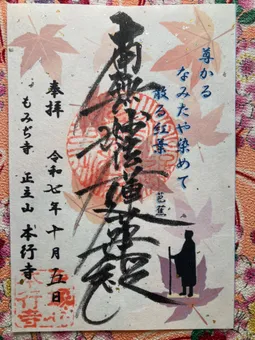 尊かる
なみたや染めて
散る紅葉
芭蕉
南無妙法蓮華経
奉拝 令和七年十月五日
もみぢ寺 正立山 本行寺
本行寺